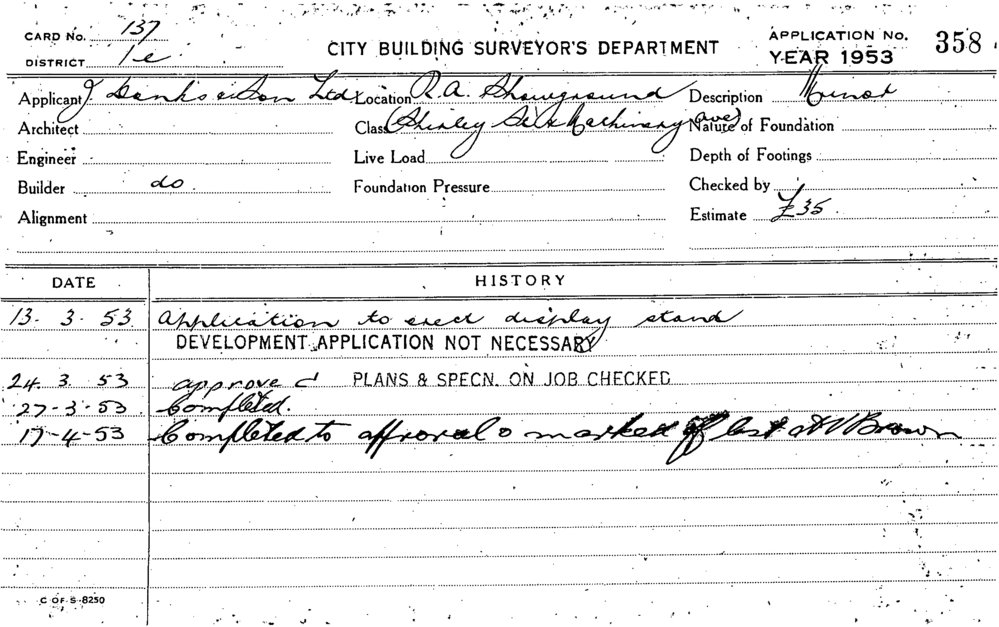 CARD No. 137
DISTRICT 1e
CITY BUILDING SURVEYOR'S DEPARTMENT
APPLICATION No. 358
YEAR 1953
Applicant J Danks & Son Ltd Location R.A. Showground Description Minor
Architect Class (Shirley & Machinery Ave) Nature of Foundation
Engineer Live Load Depth of Footings
Builder do. Foundation Pressure Checked by
Alignment Estimate £35
DATE HISTORY
13-3-53 Application to erect display stand
DEVELOPMENT APPLICATION NOT NECESSARY
24.3.53 approved PLANS & SPECN. ON JOB CHECKED
27-3-53 Completed.
17-4-53 Completed to approval & marked off list Brown
C OF S-8250